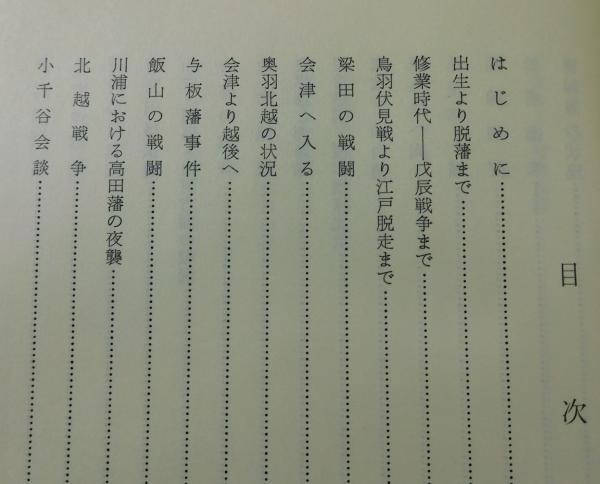 目次
はじめに
出生より脱藩まで
修業時代――戊辰戦争まで
鳥羽伏見戦より江戸脱走まで
梁田の戦闘
会津へ入る
奥羽北越の状況
会津より越後へ
与板藩事件
飯山の戦闘
川浦における高田藩の夜襲
北越戦争
小千谷会談